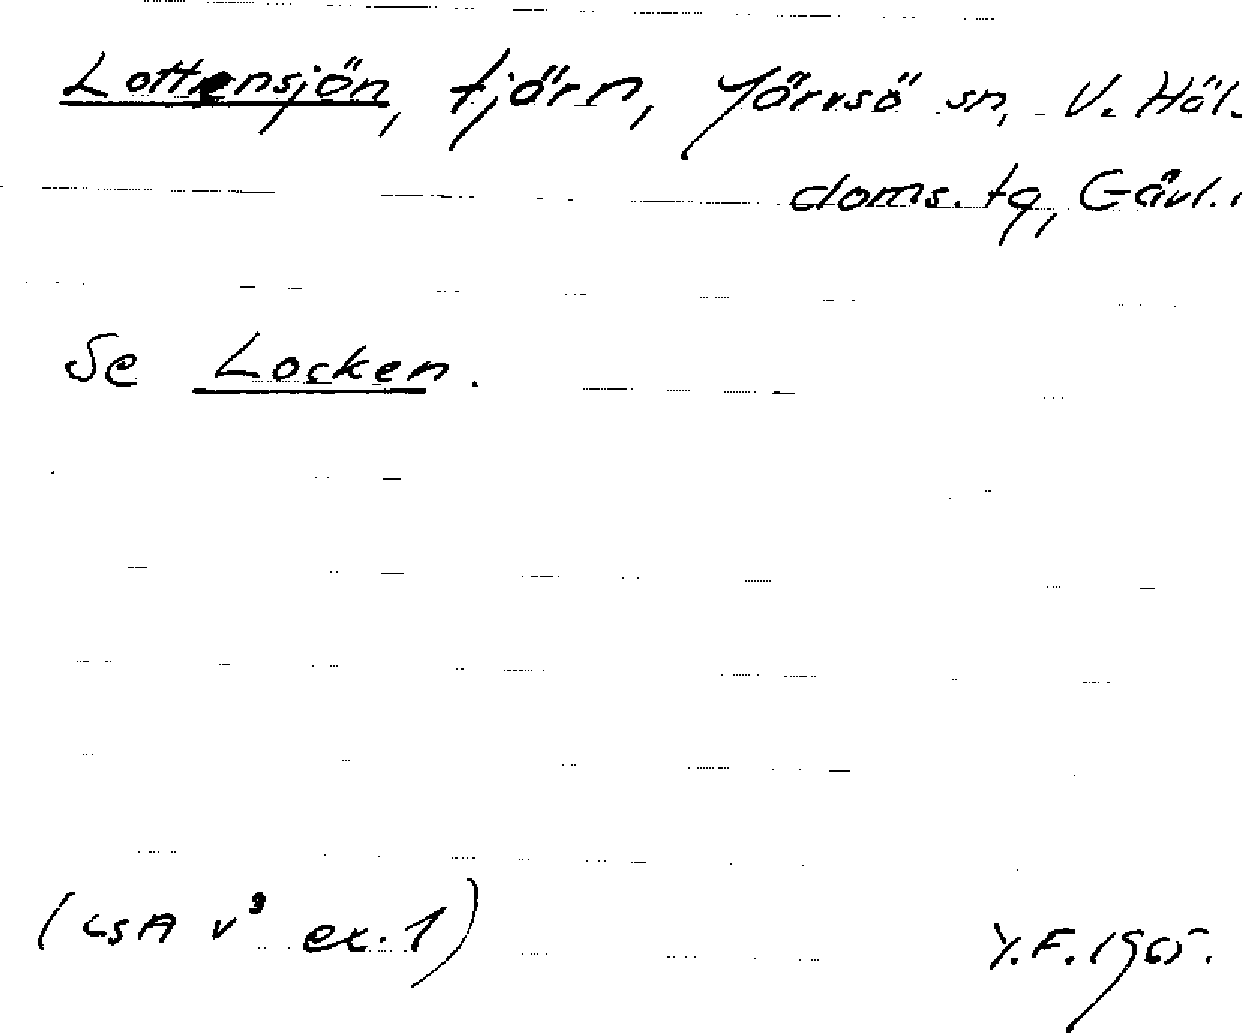 Lottensjön, tjärn, Järvsö sn, V. Häl.
doms. tg, Gävl. l
Se Locken.
(LSA v³ ex. 1) Y.F. 1965.